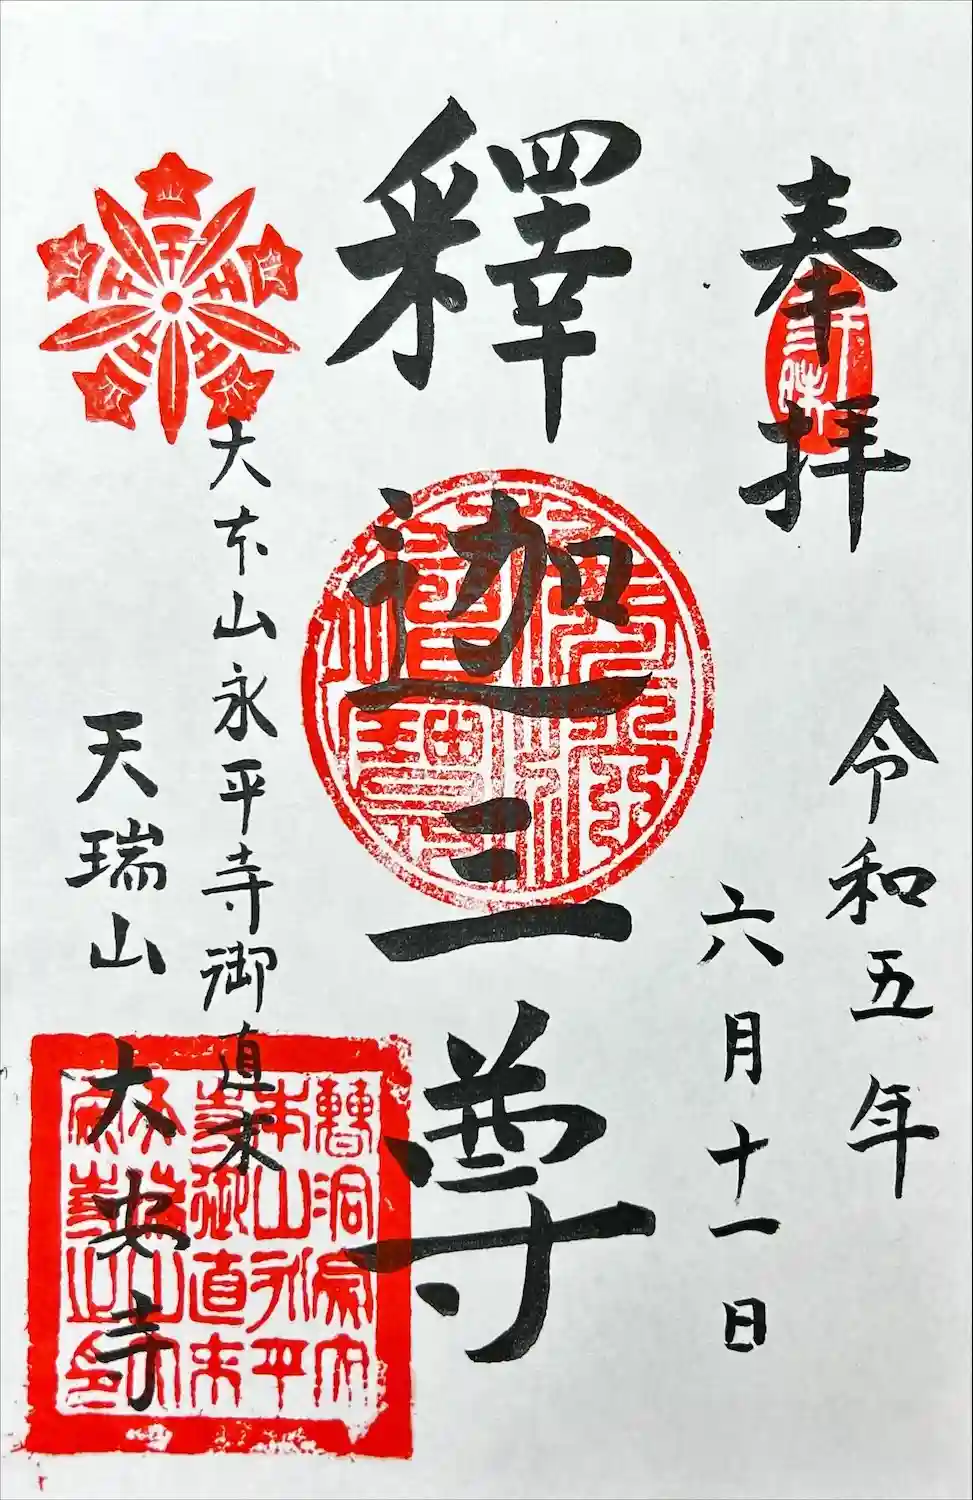 奉拝
令和五年
六月十一日
釋迦三尊
大本山永平寺御直末
天瑞山
大安寺